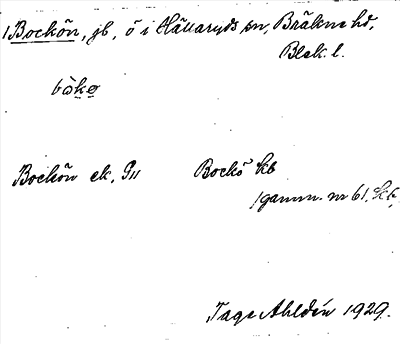 1 Bockön, jb, ö i Hällaryds sn, Bräkne hd,
Blek. l.
bòkø
Bockön ek. G11 Bockö kb
/gamm. nr 61, kb,
Tage Ahldén 1929.